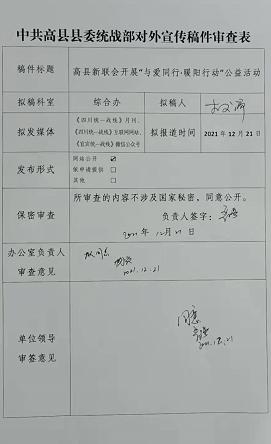 中共高县县委统战部对外宣传稿件审查表
稿件标题 高县新联会开展“与爱同行·暖阳行动”公益活动
拟稿科室 综合办 拟稿人
拟发媒体 《四川统一战线》月刊、
《四川统一战线》互联网网站、
《宜宾统一战线》微信公众号
拟报道时间 2021年12月21日
发布形式 网站公开 ☑
依申请提供 □
其他 □
保密审查 所审查的内容不涉及国家秘密，同意公开。
负责人签字：
2021年12月21日
办公室负责人
审查意见
2021.12.21
单位领导
审签意见
同意
2021.12.21